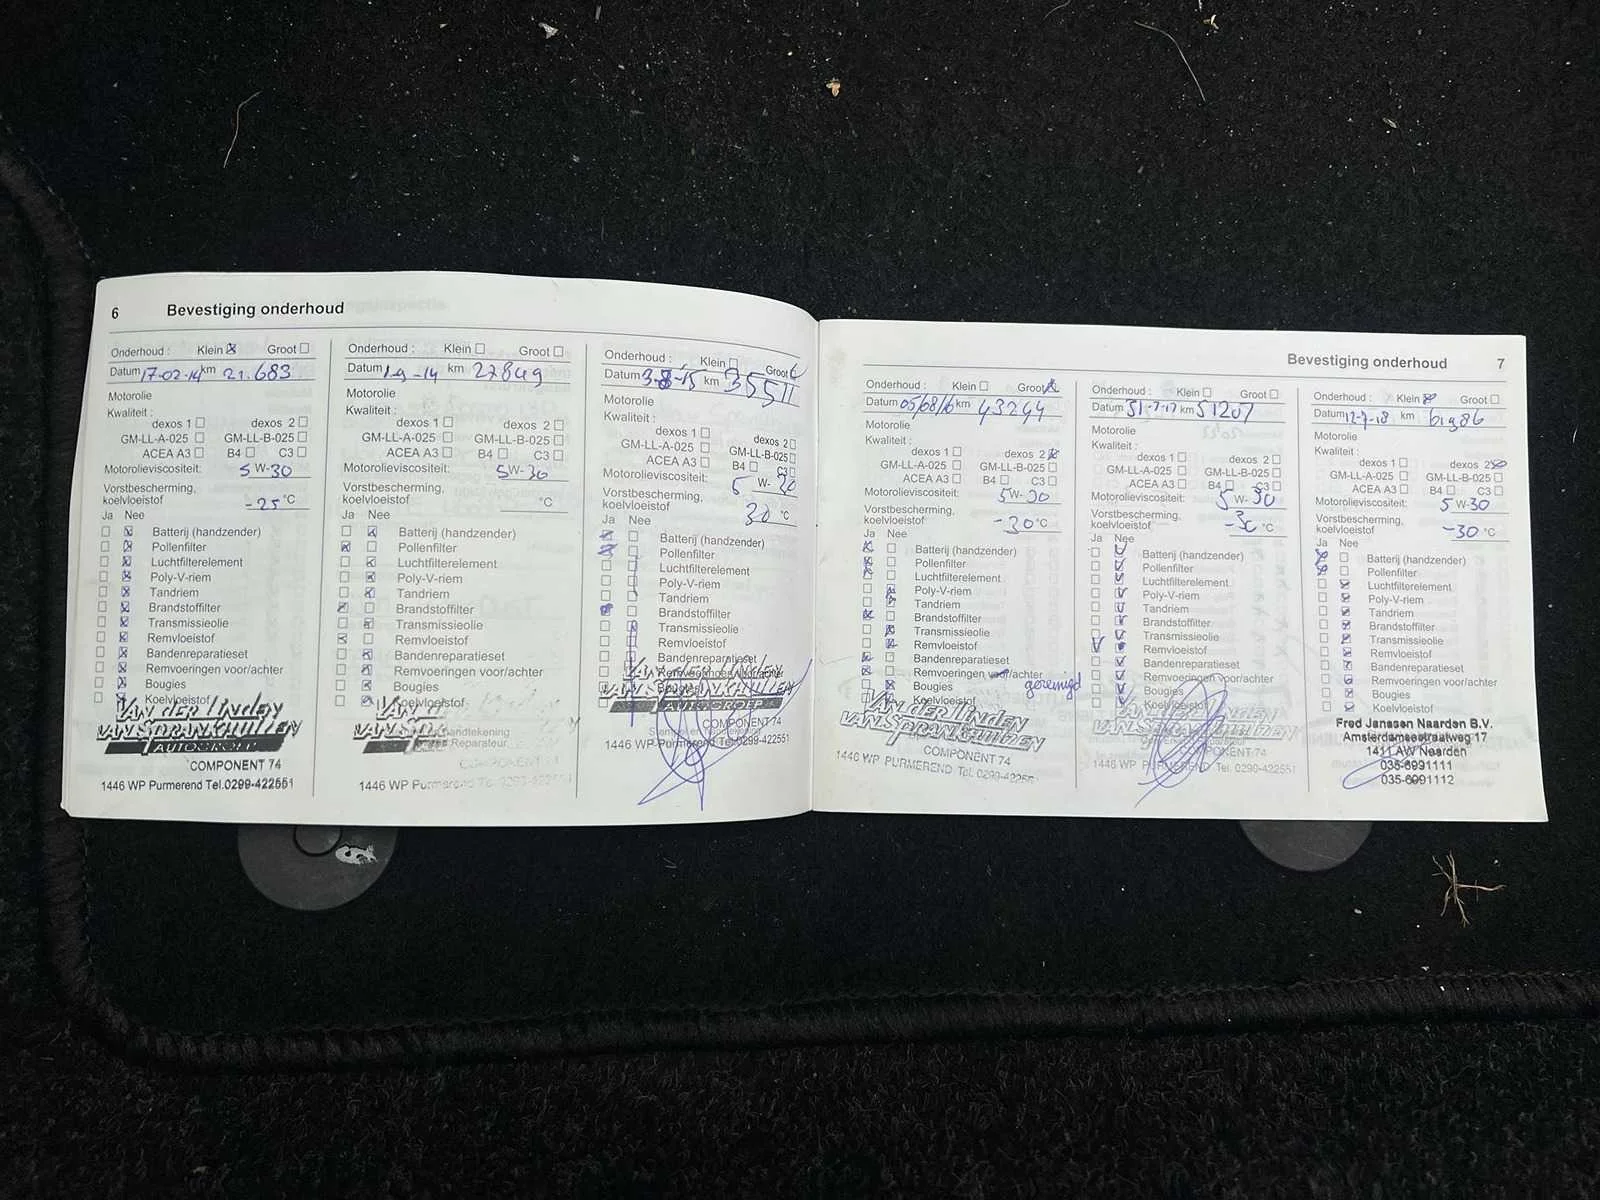 6 Bevestiging onderhoud
Onderhoud : Klein Groot
Datum 17-02-14 km 21.683
Motorolie
Kwaliteit :
dexos 1 dexos 2
GM-LL-A-025 GM-LL-B-025
ACEA A3 B4 C3
Motorolieviscositeit: 5 W-30
Vorstbescherming,
koelvloeistof -25 °C
Ja Nee
Batterij (handzender)
Pollenfilter
Luchtfilterelement
Poly-V-riem
Tandriem
Brandstoffilter
Transmissieolie
Remvloeistof
Bandenreparatieset
Remvoeringen voor/achter
Bougies
Koelvloeistof
VAN DER LINDEN
VAN SPRANKHUIZEN
AUTOGROEP
COMPONENT 74
1446 WP Purmerend Tel.0299-422551
Onderhoud : Klein Groot
Datum 1-9-14 km 27849
Motorolie
Kwaliteit :
dexos 1 dexos 2
GM-LL-A-025 GM-LL-B-025
ACEA A3 B4 C3
Motorolieviscositeit: 5W-30
Vorstbescherming,
koelvloeistof °C
Ja Nee
Batterij (handzender)
Pollenfilter
Luchtfilterelement
Poly-V-riem
Tandriem
Brandstoffilter
Transmissieolie
Remvloeistof
Bandenreparatieset
Remvoeringen voor/achter
Bougies
Koelvloeistof
Reparateur
COMPONENT 74
1446 WP Purmerend
Onderhoud : Klein Groot
Datum 3-8-15 km 35511
Motorolie
Kwaliteit :
dexos 1 dexos 2
GM-LL-A-025 GM-LL-B-025
ACEA A3 B4 C3
Motorolieviscositeit: 5 W-30
Vorstbescherming,
koelvloeistof 30 °C
Ja Nee
Batterij (handzender)
Pollenfilter
Luchtfilterelement
Poly-V-riem
Tandriem
Brandstoffilter
Transmissieolie
Remvloeistof
Bandenreparatieset
Remvoeringen voor/achter
Bougies
VAN DER LINDEN
VAN SPRANKHUIZEN
AUTOGROEP
COMPONENT 74
1446 WP Purmerend Tel.0299-422551
Bevestiging onderhoud 7
Onderhoud : Klein Groot
Datum 05/08/16 km 43244
Motorolie
Kwaliteit :
dexos 1 dexos 2
GM-LL-A-025 GM-LL-B-025
ACEA A3 B4 C3
Motorolieviscositeit: 5W-30
Vorstbescherming,
koelvloeistof -30 °C
Ja Nee
Batterij (handzender)
Pollenfilter
Luchtfilterelement
Poly-V-riem
Tandriem
Brandstoffilter
Transmissieolie
Remvloeistof
Bandenreparatieset
Remvoeringen voor/achter
Bougies gereinigd
Koelvloeistof
VAN DER LINDEN
VAN SPRANKHUIZEN
COMPONENT 74
1446 WP PURMEREND Tel. 0299-422551
Onderhoud : Klein Groot
Datum 31-7-17 km 51207
Motorolie
Kwaliteit :
dexos 1 dexos 2
GM-LL-A-025 GM-LL-B-025
ACEA A3 B4 C3
Motorolieviscositeit: 5 W-30
Vorstbescherming,
koelvloeistof -30 °C
Ja Nee
Batterij (handzender)
Pollenfilter
Luchtfilterelement
Poly-V-riem
Tandriem
Brandstoffilter
Transmissieolie
Remvloeistof
Bandenreparatieset
Remvoeringen voor/achter
Bougies
Koelvloeistof
VAN DER LINDEN
VAN SPRANKHUIZEN
COMPONENT 74
1446 WP PURMEREND Tel. 0299-422551
Onderhoud : Klein Groot
Datum 12-7-18 km 61986
Motorolie
Kwaliteit :
dexos 1 dexos 2
GM-LL-A-025 GM-LL-B-025
ACEA A3 B4 C3
Motorolieviscositeit: 5 W-30
Vorstbescherming,
koelvloeistof -30 °C
Ja Nee
Batterij (handzender)
Pollenfilter
Luchtfilterelement
Poly-V-riem
Tandriem
Brandstoffilter
Transmissieolie
Remvloeistof
Bandenreparatieset
Remvoeringen voor/achter
Bougies
Koelvloeistof
Fred Janssen Naarden B.V.
Amsterdamsestraatweg 17
1411 AW Naarden
035-6991111
035-6991112